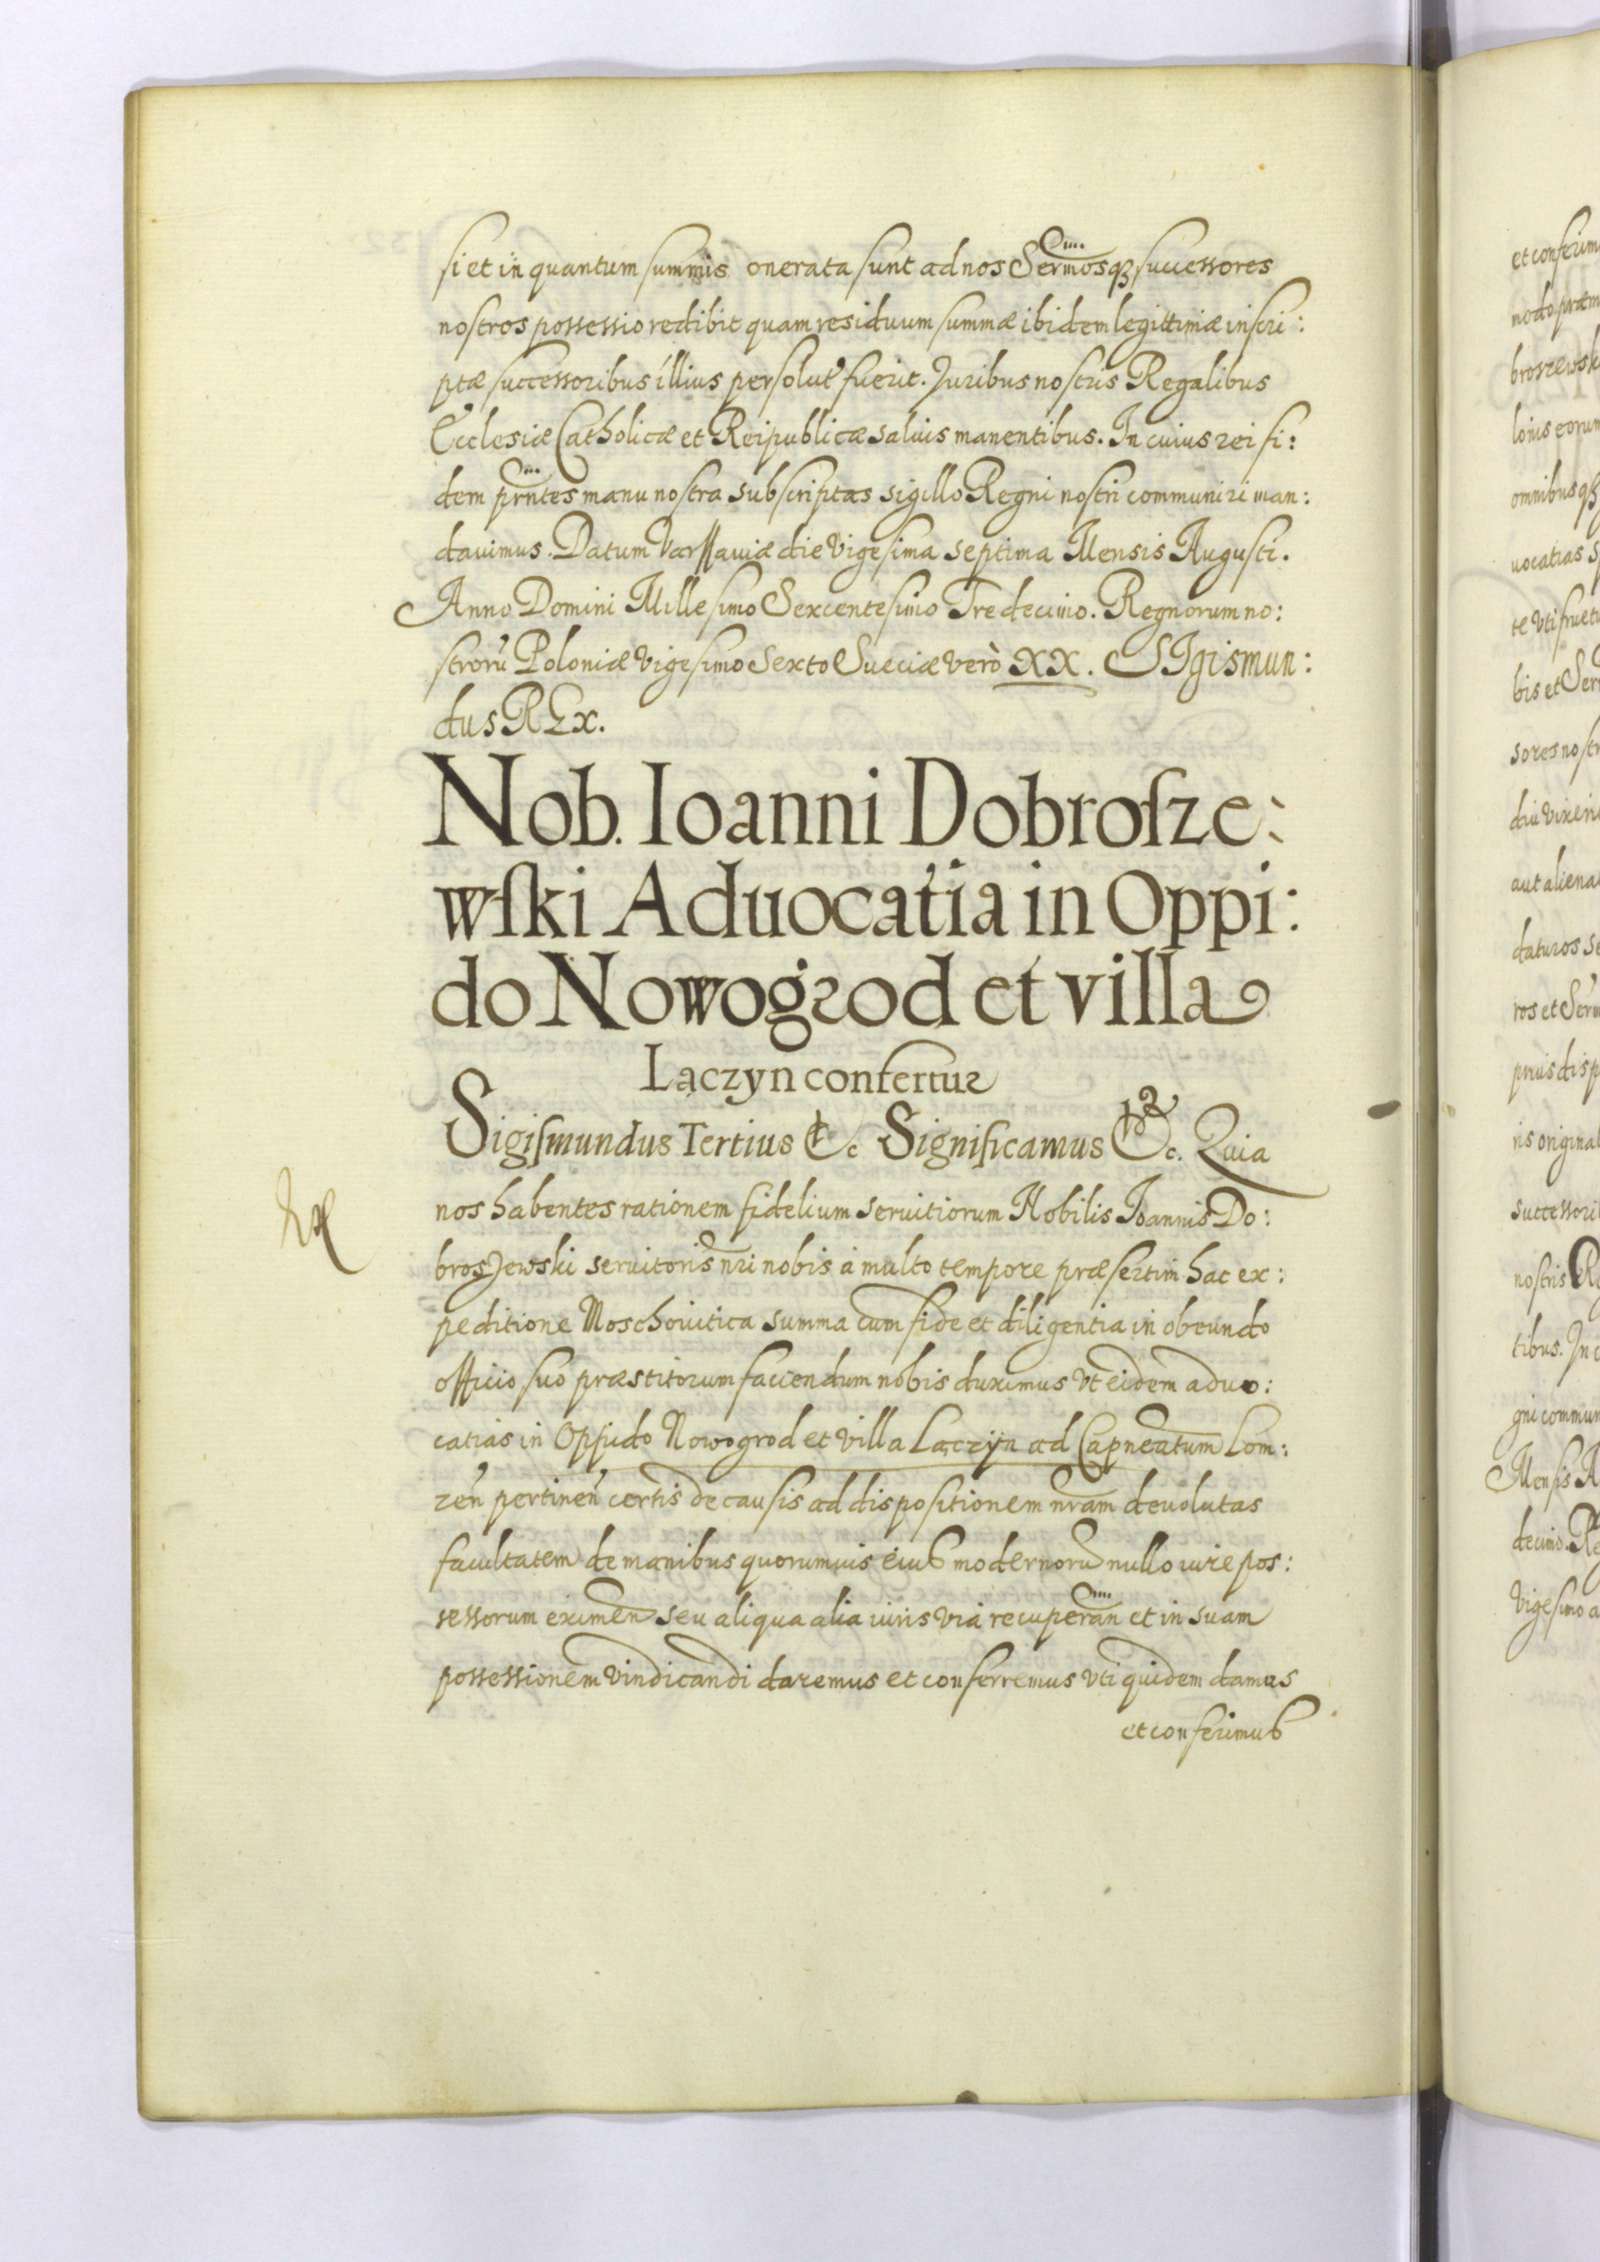 si et in quantum summis onerata sunt ad nos Sermosq₃ successores
nostros possessio redibit quam residuum summæ ibidem legittimæ inscri:
ptæ successoribus illius persolut' fuerit. Juribus nostris Regalibus
Ecclesiæ Catholicæ et Reipublicæ saluis manentibus. In cuius rei fi:
dem prntes manu nostra subscriptas sigillo Regni nostri communiri man:
dauimus. Datum Varssauiæ die Vigesima septima Mensis Augusti.
Anno Domini Millesimo Sexcentesimo Tredecimo. Regnorum no:
strorũ Poloniæ Vigesimo Sexto Sueciæ verò XX. SIgismun:
dus REx.
Nob. Ioanni Dobrosze:
wski Aduocatia in Oppi:
do Nowogrod et villa
Laczyn confertur
Sigismundus Tertius &c Significamus &c. Quia
nos habentes rationem fidelium seruitiorum Nobilis Ioannis Do:
broszewski seruitoris nri nobis a multo tempore præsertim hac ex:
peditione Moschouitica summa cum fide et diligentia in obeundo
officio suo præstitorum faciendum nobis duximus vt eidem aduo:
catias in Oppido Nowogrod et Villa Laczyn ad Capneatum Lom:
zeñ pertineñ certis de causis ad dispositionem nram deuolutas
facultatem de manibus quorumuis eius modernorũ nullo iure pos:
sessorum eximen seu aliqua alia iuris via recuperan et in suam
possessionem vindicandi daremus et conferremus vti quidem damus
et conferimus
et conferim
nodo præm
broszewsk
lonis eorum
omnibusq₃
uocatias
te vti fruet
bis et Ser
sores nostr
diu vixeri
aut aliena
daturos se
ros et Ser
prius disp
ris original
successori
nostris Re
tibus. In c
gni commun
Mensis A
decimo. Re
Vigesimo